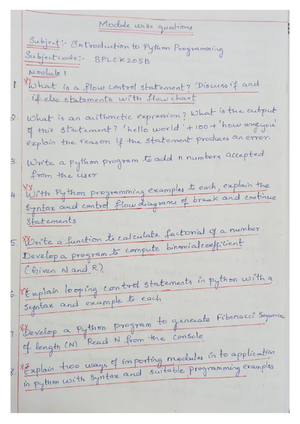 Module wise questions
Subject:- Introduction to Python Programming
Subject code:- BPLCK205B
Module 1
1 What is a flow control statement? Discuss if and
if else statements with flow chart
2 What is an arithmetic expression? What is the output
of this statement? 'hello world' + 100 + 'how are you'
explain the reason if the statement produces an error.
3 Write a Python program to add n numbers accepted
from the user
4 With Python programming examples to each, explain the
syntax and control flow diagrams of break and continue
statements
5 Write a function to calculate factorial of a number
Develop a program to compute binomial coefficient
(Given N and R)
6 Explain looping control statements in python with a
syntax and example to each
7 Develop a Python program to generate Fibonacci Sequence
of length (N) Read N from the console
8 Explain two ways of importing modules in to application
in python with syntax and suitable programming examples